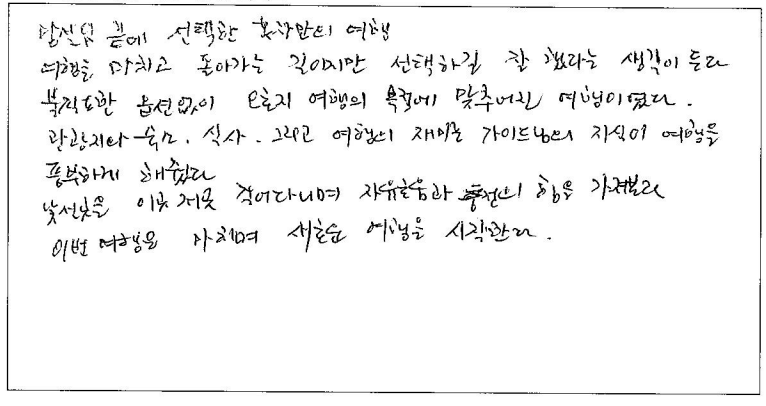 망설임 끝에 선택한 혼자만의 여행
여행을 마치고 돌아가는 길이지만 선택하길 잘 했다는 생각이 든다
불필요한 옵션없이 오로지 여행의 목적에 맞추어진 여행이였다.
관광지와 숙소. 식사. 그리고 여행의 재미는 가이드님의 지식이 여행을
풍부하게 해줬다
낯선곳을 이곳 저곳 걸어다니며 자유로움과 의 힘을 가져본다
이번 여행을 마치며 새로운 여행을 시작한다.